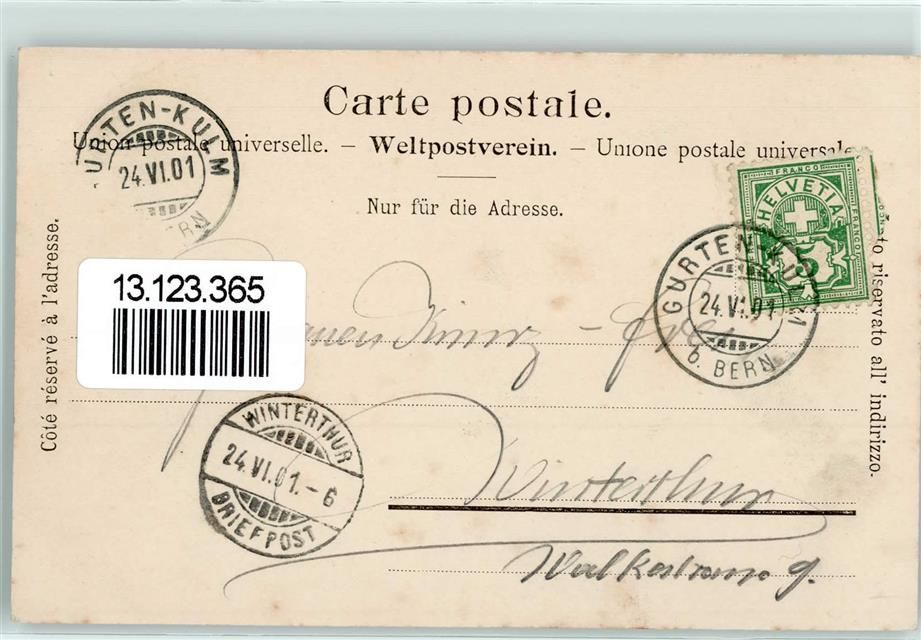 Carte postale.
Union postale universelle. – Weltpostverein. – Unione postale universale
Nur für die Adresse.
Côté réservé à l'adresse.
riservato all' indirizzo.
GURTEN-KULM
24.VI.01
BERN
FRANCO
HELVETIA
FRANCO
5
GURTEN-KULM
24.VI.01
b. BERN
13.123.365
WINTERTHUR
24.VI.01.-6
BRIEFPOST
Winterthur